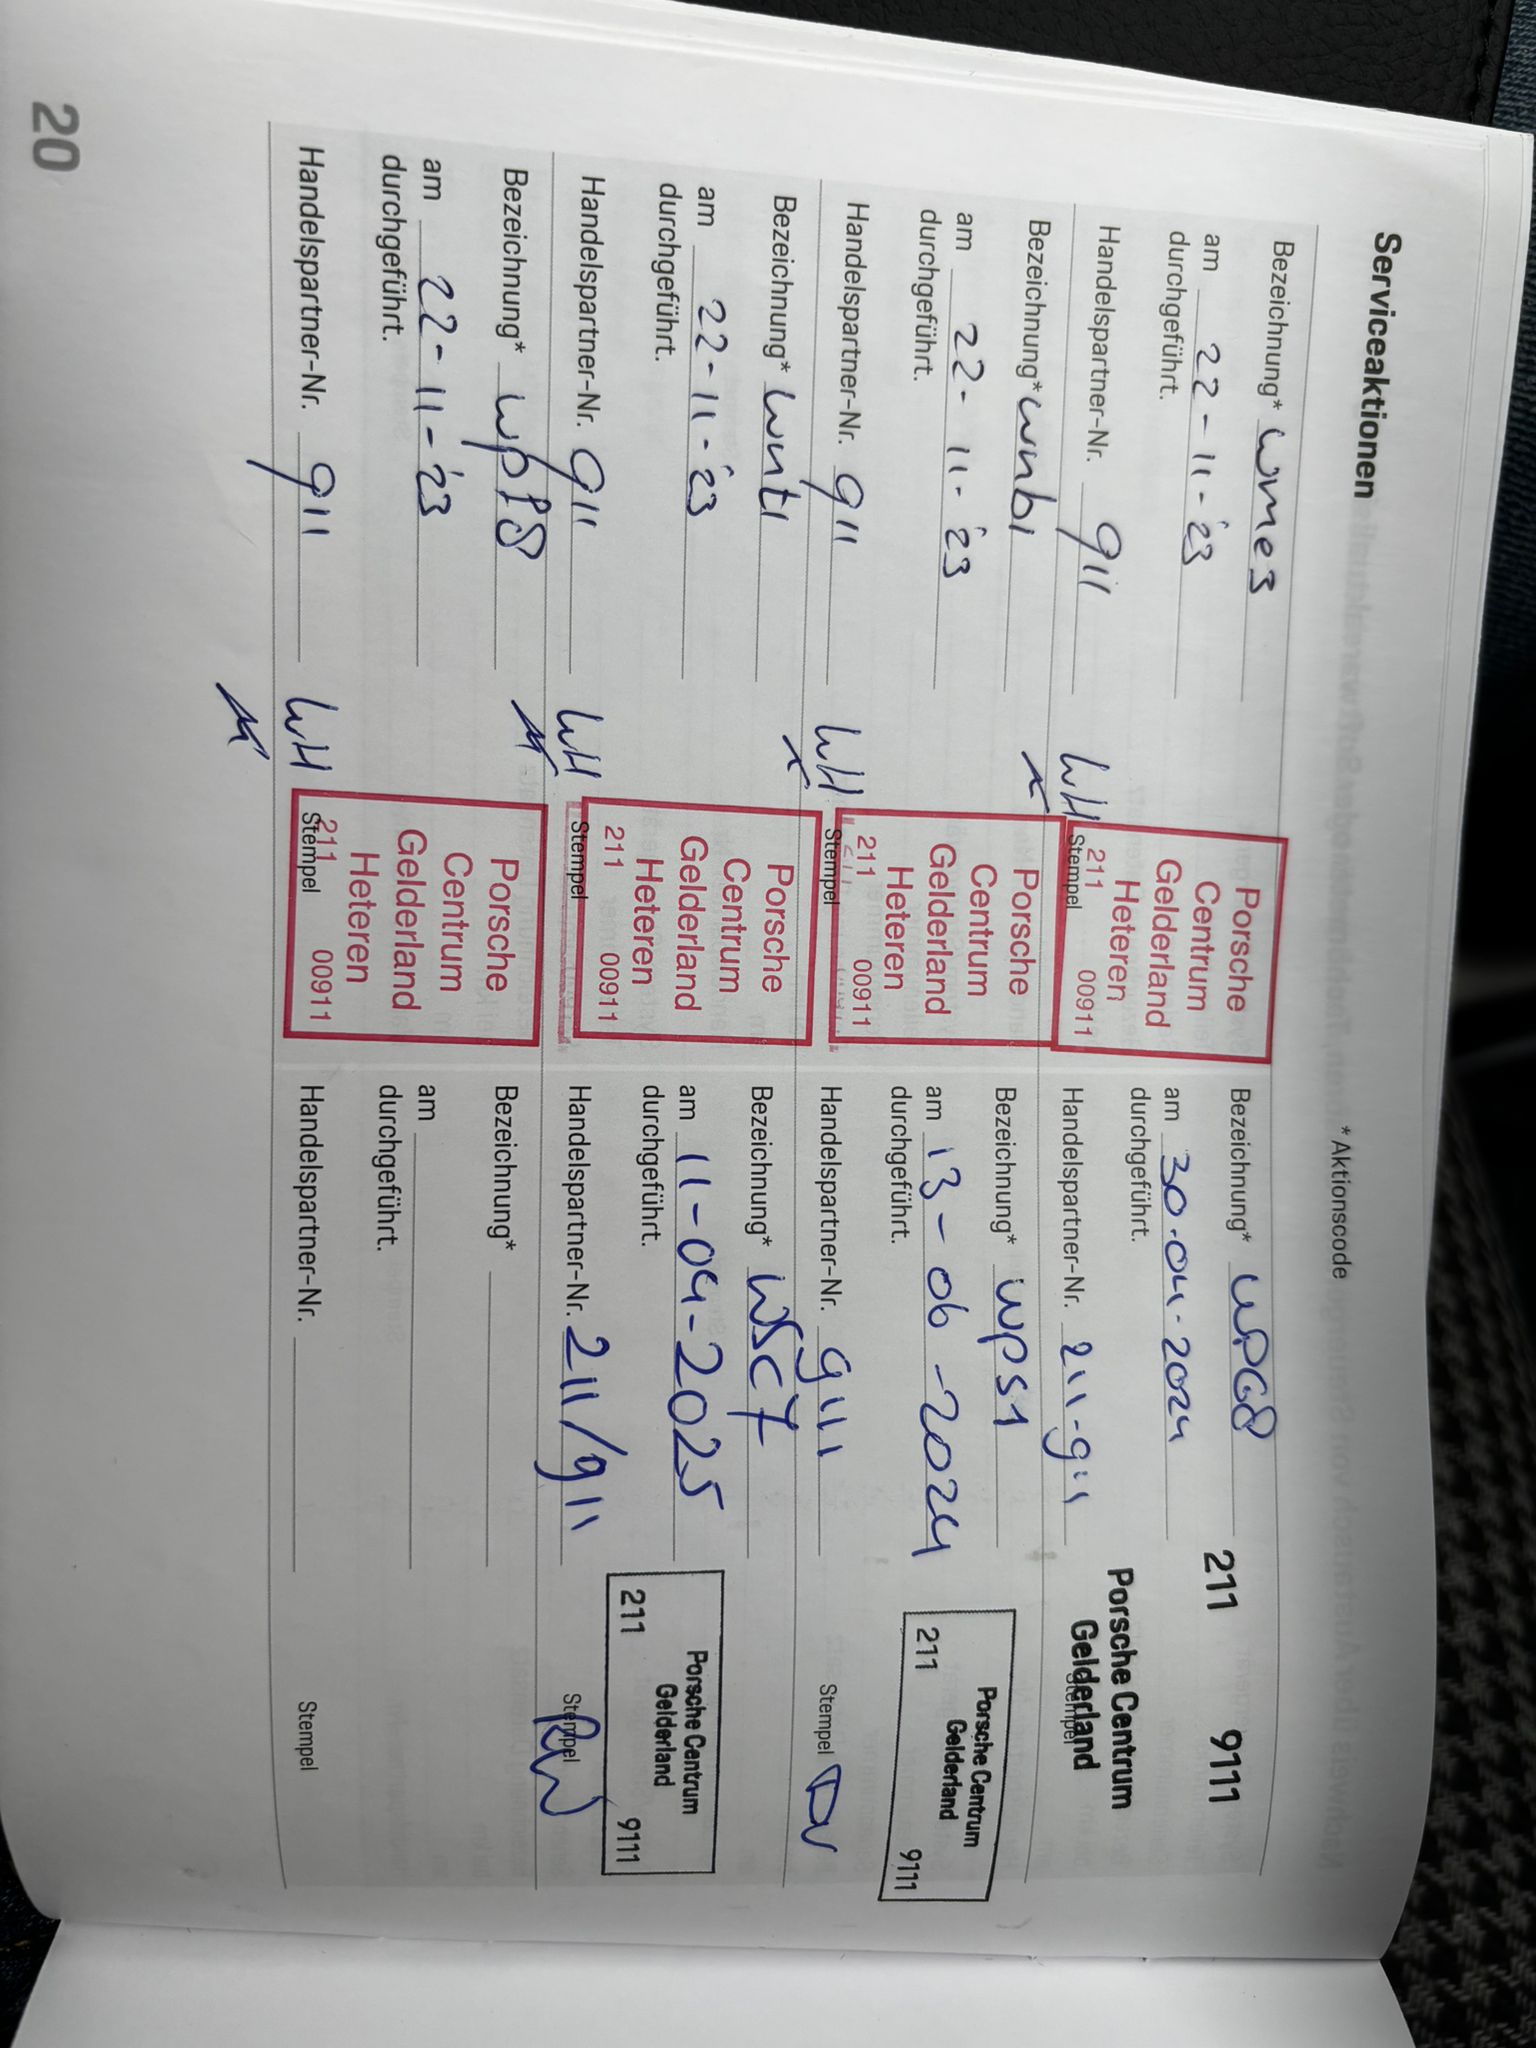 Serviceaktionen
*Aktionscode
Bezeichnung* wme3
am 22-11-'23
durchgeführt.
Handelspartner-Nr. 911
WH
Porsche
Centrum
Gelderland
Heteren
211 00911
Stempel
Bezeichnung* wnb1
am 22-11-'23
durchgeführt.
Handelspartner-Nr. 911
WH
Porsche
Centrum
Gelderland
Heteren
211 00911
Stempel
Bezeichnung* wnt1
am 22-11-'23
durchgeführt.
Handelspartner-Nr. 911
WH
Porsche
Centrum
Gelderland
Heteren
211 00911
Stempel
Bezeichnung* wpf8
am 22-11-'23
durchgeführt.
Handelspartner-Nr. 911
WH
Porsche
Centrum
Gelderland
Heteren
211 00911
Stempel
Bezeichnung* WPG8
am 30-04-2024
durchgeführt.
Handelspartner-Nr. 211-911
211 9111
Porsche Centrum
Gelderland
Stempel
Bezeichnung* WPS1
am 13-06-2024
durchgeführt.
Handelspartner-Nr. 9111
Porsche Centrum
Gelderland
211 9111
Stempel
Bezeichnung* WSC7
am 11-04-2025
durchgeführt.
Handelspartner-Nr. 211/911
Porsche Centrum
Gelderland
211 9111
Stempel
Bezeichnung*
am
durchgeführt.
Handelspartner-Nr.
Stempel
20